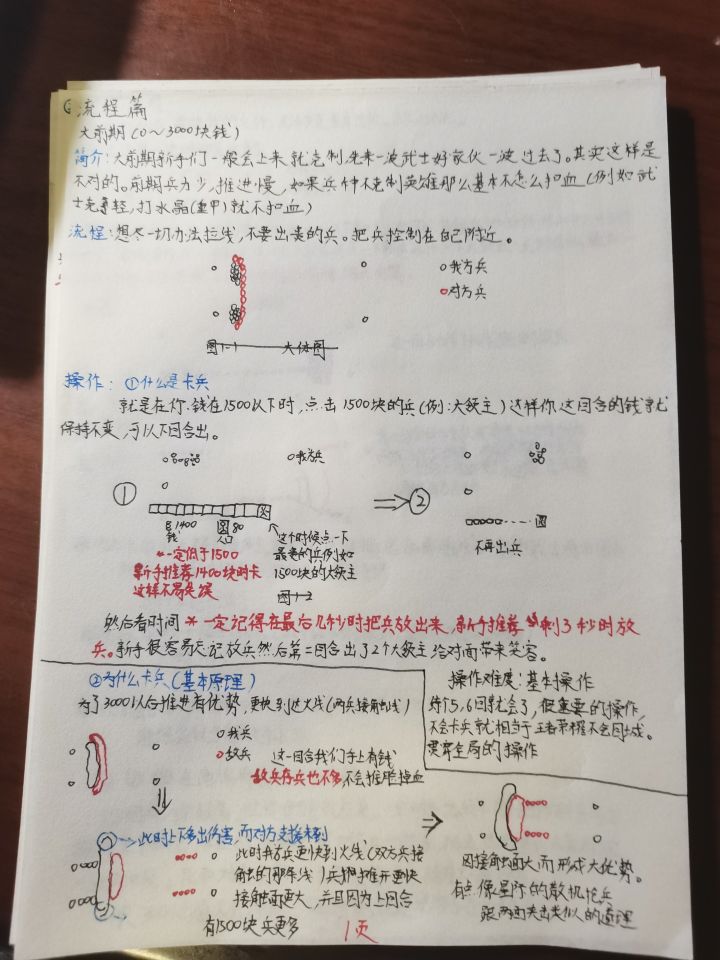 流程篇
大前期(0~3000块钱)
简介:大前期新手们一般会上来就克制,先来一波武士好家伙一波过去了。其实这样是
不对的。前期兵力少,推进慢,如果兵种不克制英雄那么基本不怎么扣血(例如武
士克轻,打水晶(重甲)就不扣血)
流程:想尽一切办法拉线,不要出贵的兵。把兵控制在自己附近。
我方兵
对方兵
图1-1 大体图
操作:①什么是卡兵
就是在你钱在1500以下时,点击1500块的兵(例:大领主)这样你这回合的钱就
保持不变,可以下回合出。
我方兵
① ⇒ ②
1400 80
钱 人口
不再出兵
这个时候点一下
*一定低于1500 最贵的兵例如
新手推荐1400块时卡 1500块的大领主
这样不易失误
图1-2
然后看时间 *一定记得在最后几秒时把兵放出来,新手推荐剩3秒时放
兵。新手很容易忘记放兵然后第二回合出了2个大领主给对面带来笑容。
②为什么卡兵(基本原理)
为了3000以后推进有优势,更快到达火线(两兵接触线)
我兵
敌兵
这一回合我们手上有钱
敌兵存兵也不多不会推脸掉血
操作难度:基本操作
练个5,6回就会了,很重要的操作,
不会卡兵就相当于王者荣耀不会回城。
贯穿全局的操作
此时上下多出伤害,而对方支援未到
此时我方兵更快到火线(双方兵接
触的那条线)兵把摊开更快
接触面更大,并且因为上回合
有1500块兵更多
因接触面大而形成大优势。
有点像星际的散机枪兵
跟两面夹击类似的道理
1页